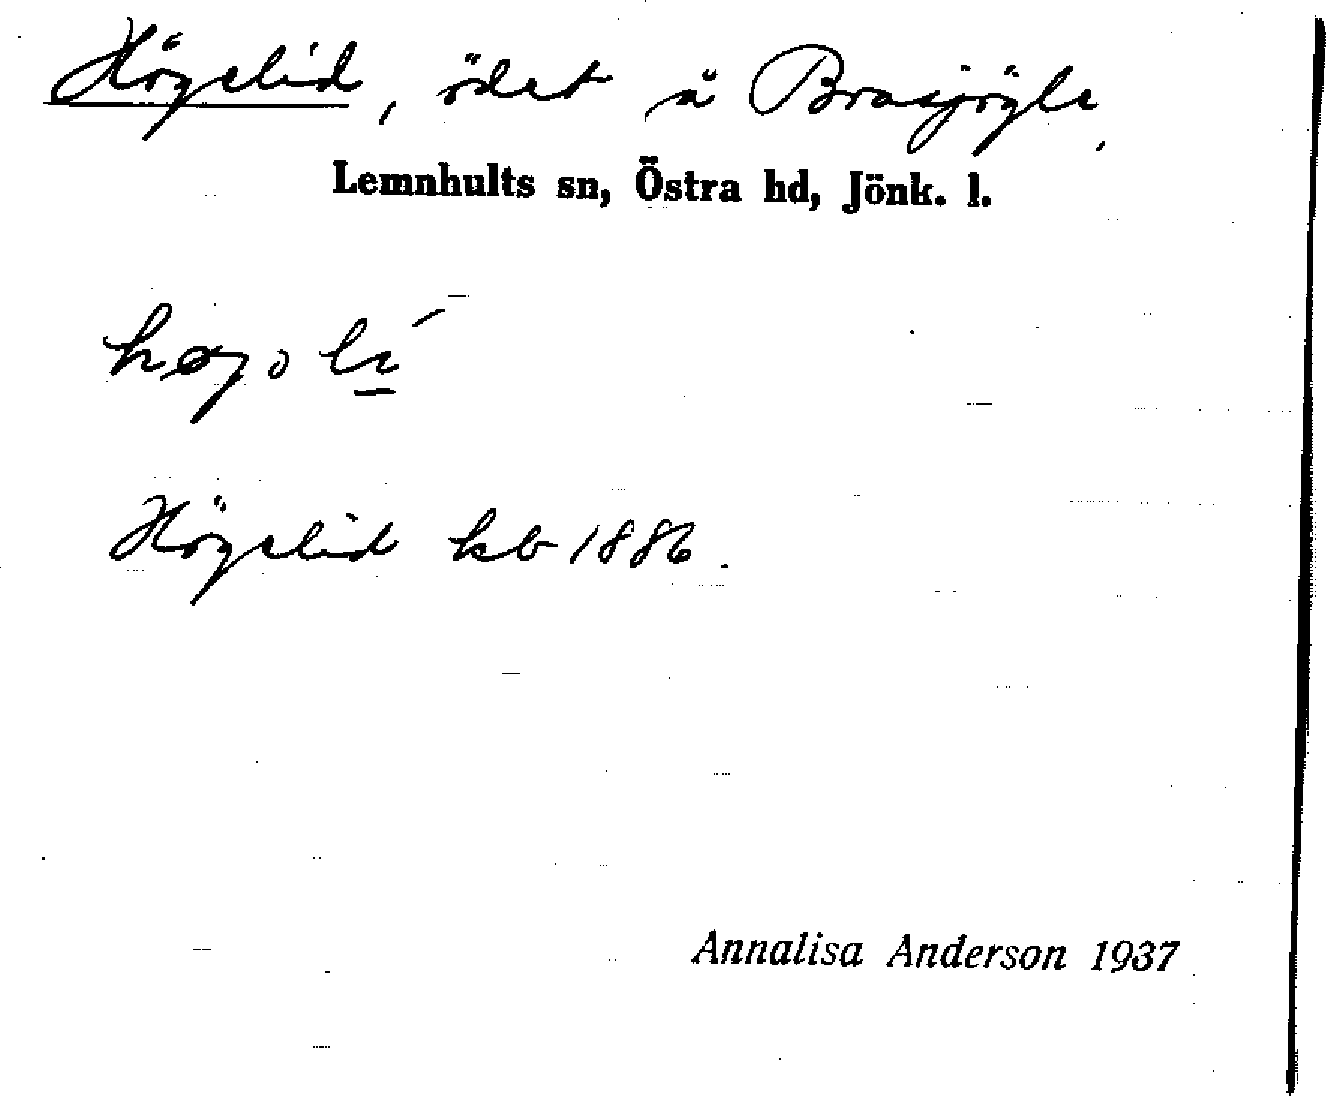 Högelid, ödet å Brasjögle,
Lemnhults sn, Östra hd, Jönk. l.
Högelid kb 1886.
Annalisa Anderson 1937